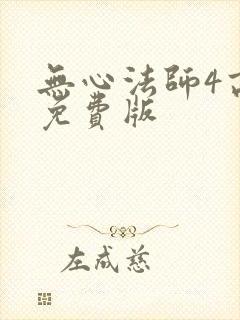 無心法師4
免費版
左成慈